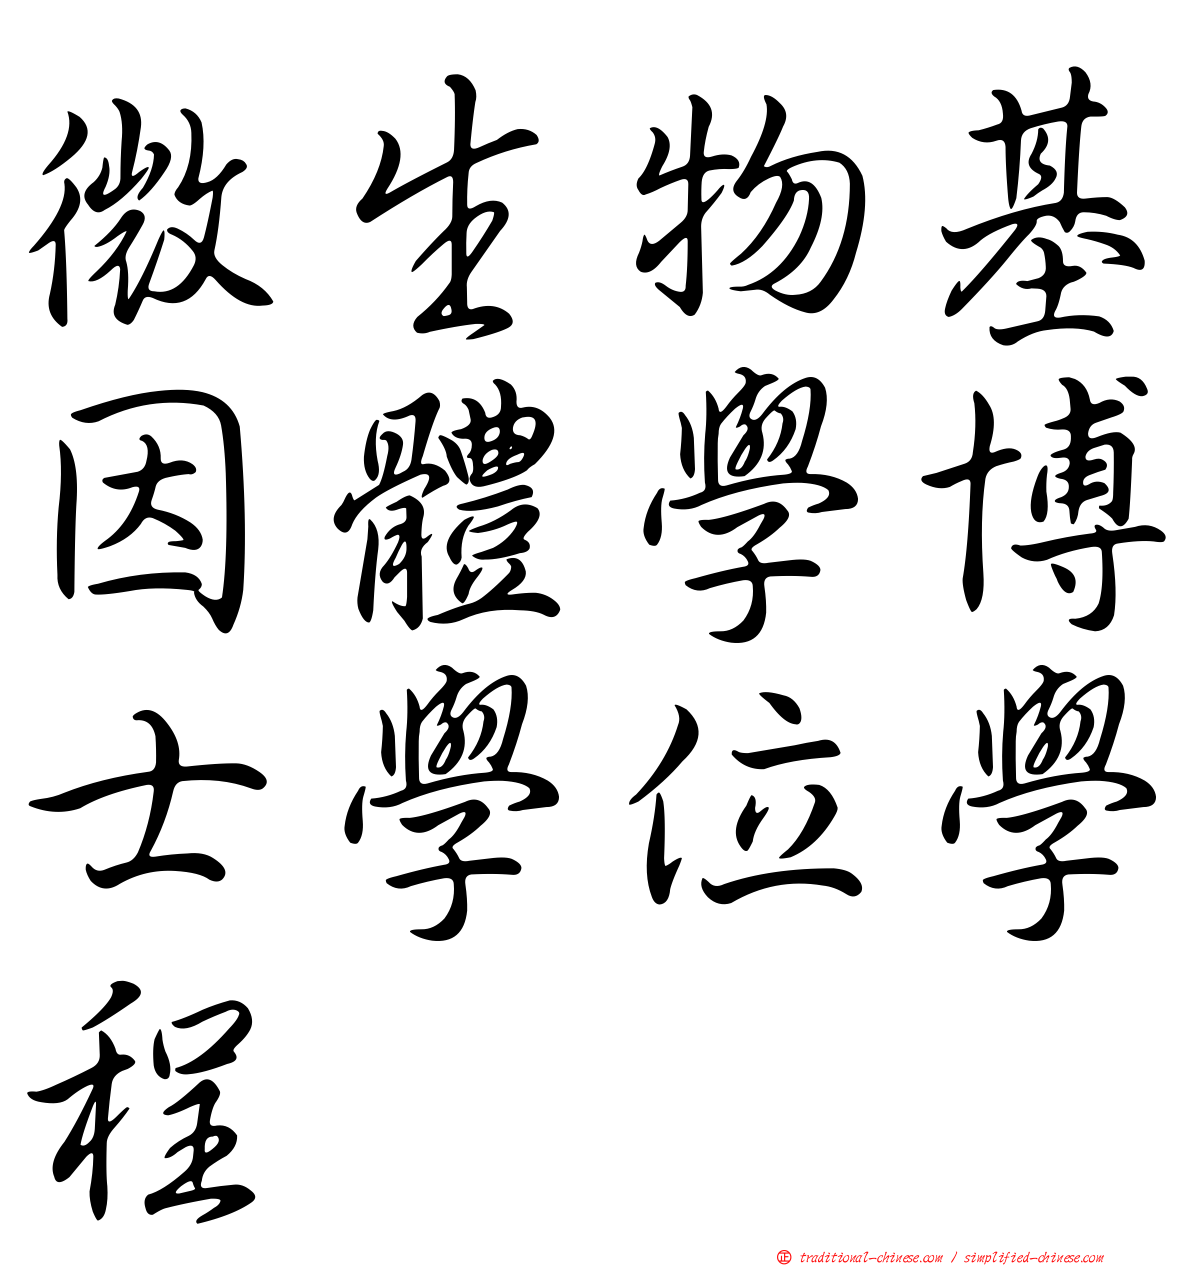 微生物基
因體學博
士學位學
程
正 traditional-chinese.com / simplified-chinese.com